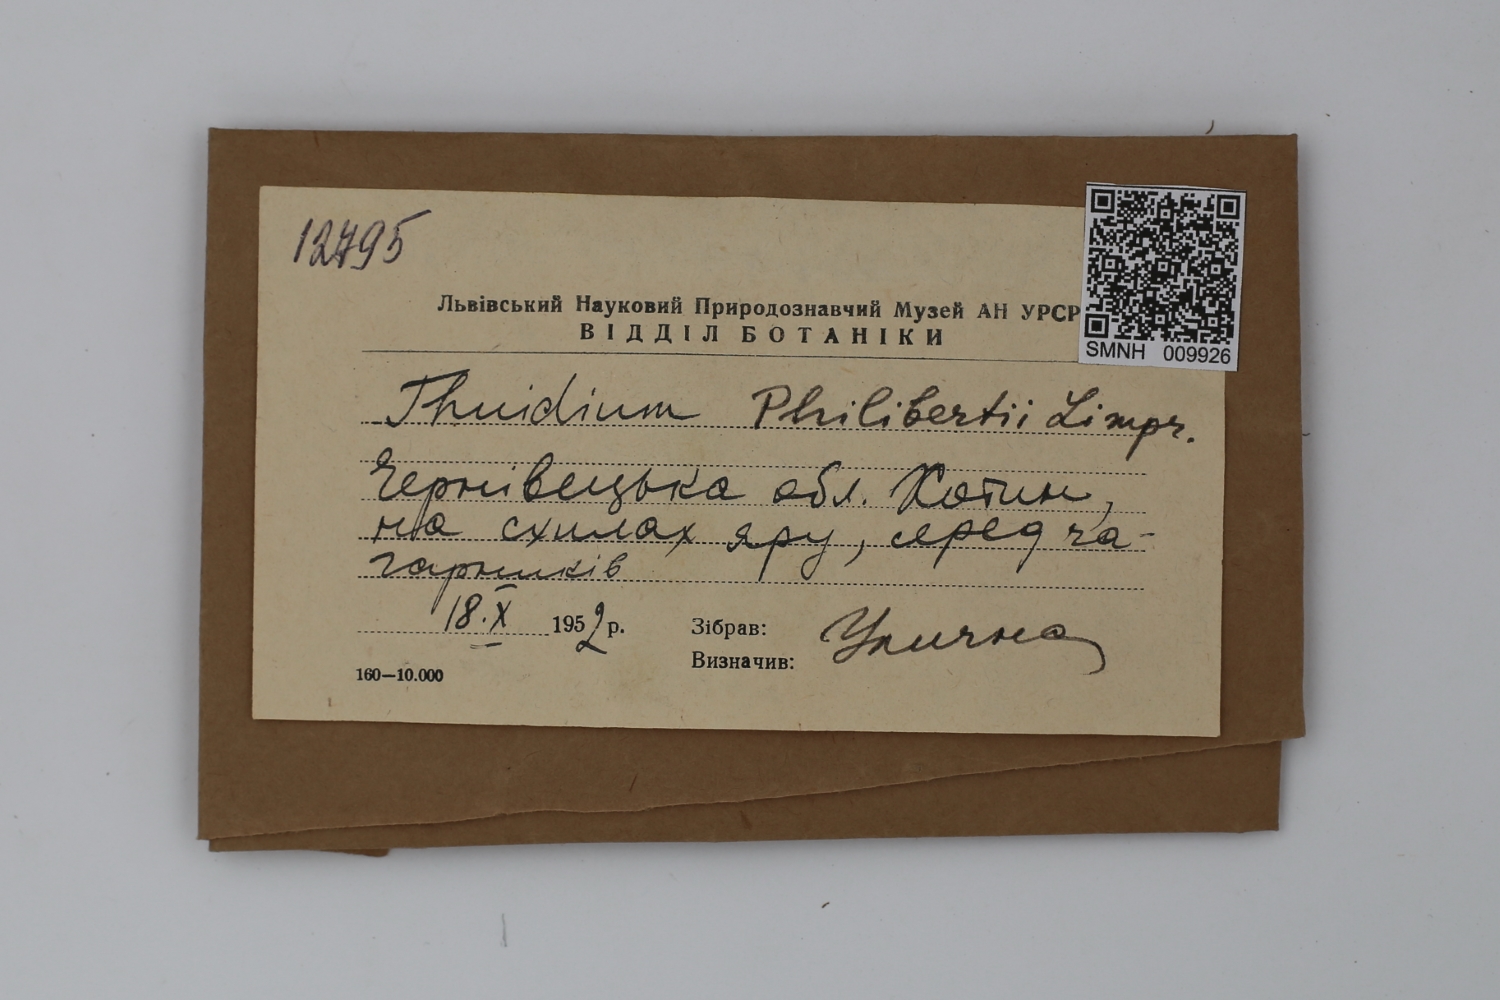 12795
Львівський Науковий Природознавчий Музей АН УРСР
ВІДДІЛ БОТАНІКИ
SMNH 009926
Thuidium Philibertii Limpr.
Чернівецька обл. Хотин,
на схилах яру, серед ча-
гарників
18.X 1952 р.
Зібрав: Улична
Визначив:
160—10.000